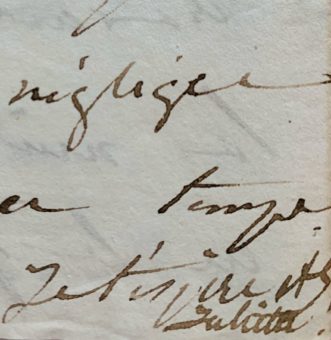 négliger
temps
Je t'espère
Juliette